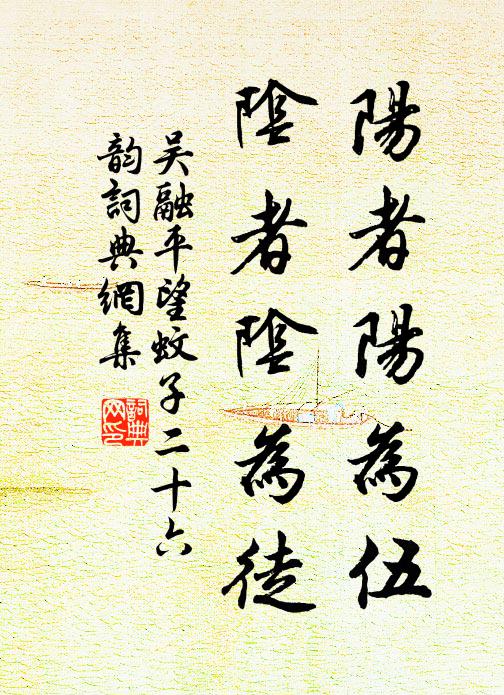 陽者陽為伍
陰者陰為徒
吳融平望蚊子二十六
韵詞典網集
詞典
网印